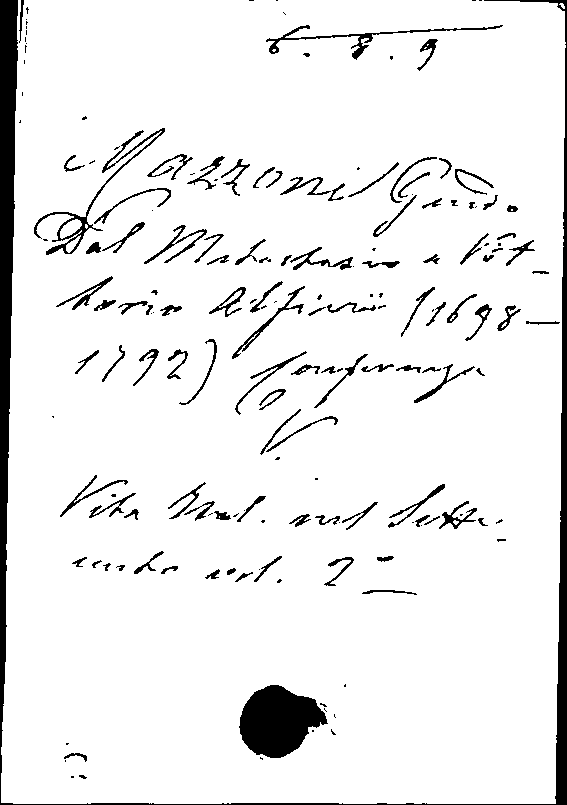 6. 8. 9
Mazzoni Guido
Dal Metastasio a Vit-
torio Alfieri (1698-
1792) Conferenza
V.
Vita Ital. nel Sette-
cento vol. 2º